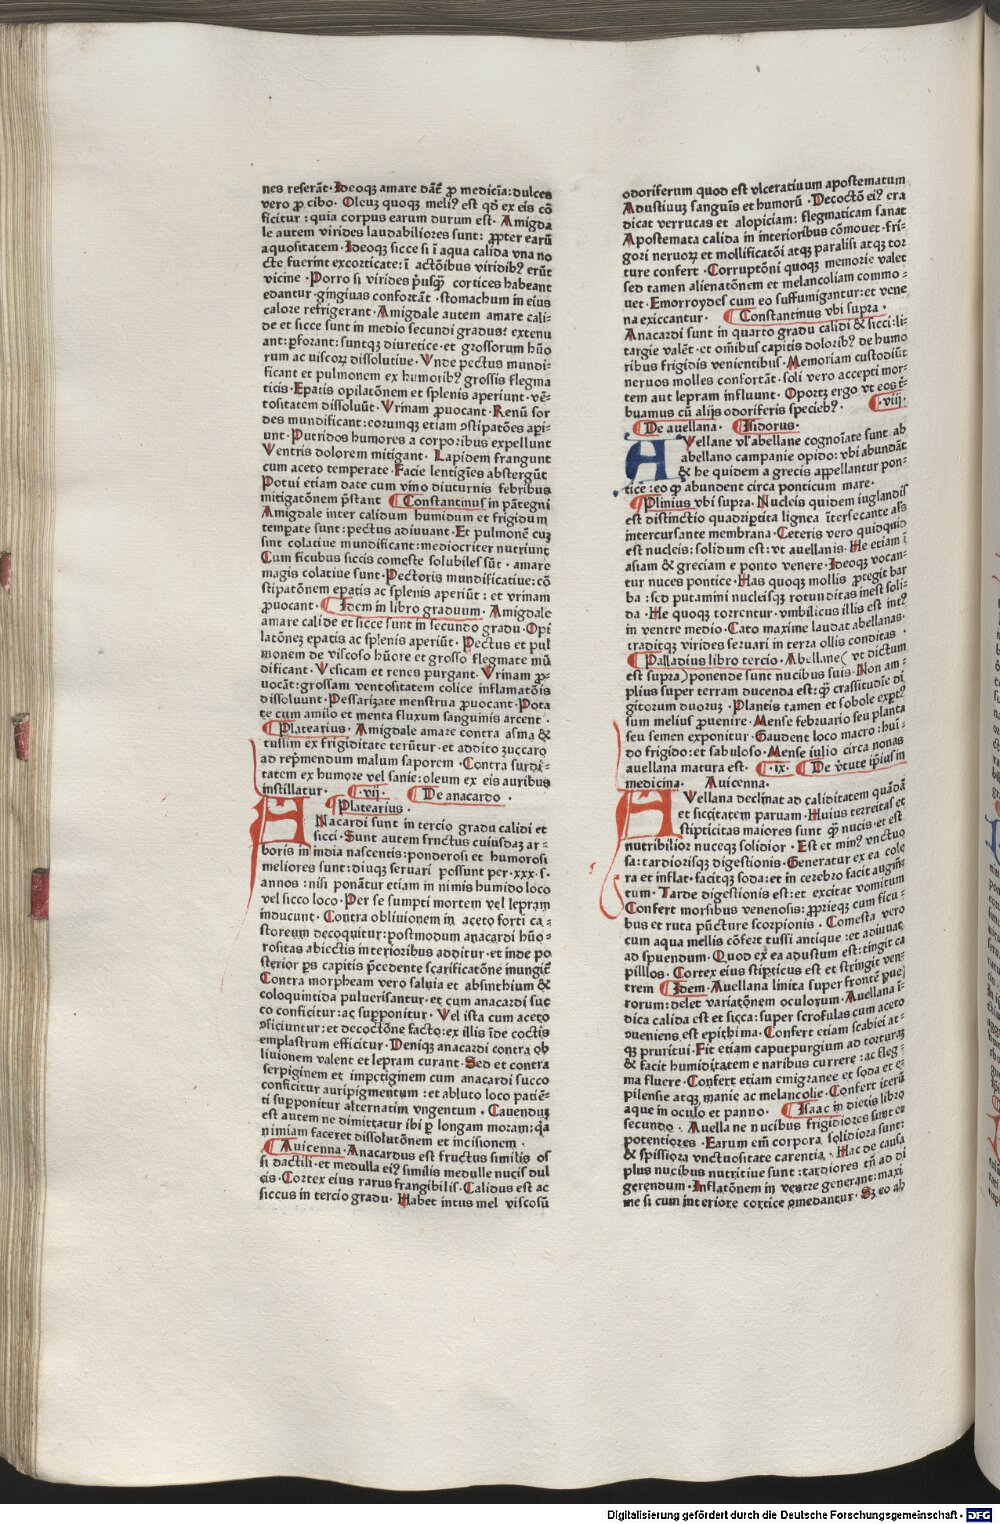 nes reserãt·Ideoqꝫ amare dãt᷑ ꝓ medicĩa:dulces
vero ꝓ cibo·Oleuꝫ quoqꝫ meliꝰ est qð ex eis cõ
ficitur:quia corpus earum durum est·Amigda
le autem virides laudabiliores sunt: ꝓpter earũ
aquositatem·Ideoqꝫ sicce si ĩ aqua calida vna no
cte fuerint excorticate:ĩ actõibus viridibꝰ erũt
vicine·Porro si virides p̃usqꝫ̃ cortices habeant
edantur·gingiuas confortãt·stomachum in eius
calore refrigerant·Amigdale autem amare cali-
de et sicce sunt in medio secundi gradus: extenu
ant:ꝑforant:suntqꝫ diuretice·et grossorum hũo
rum ac viscoꝝ dissolutiue·Vnde pectus mundi-
ficant et pulmonem ex humoribꝰ grossis flegma
ticis·Epatis opilatõnem et splenis aperiunt·vẽ-
tositatem dissoluũt·Vrinam ꝓuocant·Renũ sor
des mundificant:eorumqꝫ etiam ↄstipatões api-
unt·Putridos humores a corporibus expellunt
Ventris dolorem mitigant·Lapidem frangunt
cum aceto temperate·Facie lentigĩes abstergũt
Potui etiam date cum vino diuturnis febribus
mitigatõnem p̃stant ¶Constantinus in pãtegni
Amigdale inter calidum humidum et frigidum
temꝑate sunt:pectus adiuuant·Et pulmonẽ cuꝫ
sint colatiue mundificant:mediocriter nutriunt
Cum ficubus siccis comeste solubiles sũt·amare
magis colatiue sunt·Pectoris mundificatiue:cõ
stipatõnem epatis ac splenis aperiũt:et vrinam
ꝓuocant·¶Idem in libro graduum·Amigdale
amare calide et sicce sunt in secundo gradu·Opi
latõneꝫ epatis ac splenis aperiũt·Pectus et pul
monem de viscoso hũore et grosso flegmate mũ
dificant·Vesicam et renes purgant·Vrinam ꝓ-
uocãt:grossam ventositatem colice inflamatõis
dissoluunt·Pessarizate menstrua ꝓuocant·Pota
te cum amilo et menta fluxum sanguinis arcent·
¶Platearius·Amigdale amare contra asma &
tussim ex frigiditate terũtur·et addito zuccaro
ad rep̃mendum malum saporem·Contra surdi-
tatem ex humore vel sanie:oleum ex eis auribus
instillatur·¶·vij·¶De anacardo·
¶Platearius·
ANacardi sunt in tercio gradu calidi et
sicci·Sunt autem fructus cuiusdaꝫ ar-
boris in india nascentis:ponderosi et humorosi
meliores sunt:diuqꝫ seruari possunt per·xxx·s·
annos:nisi ponãtur etiam in nimis humido loco
vel sicco loco·Per se sumpti mortem vel lepram
inducunt·Contra obliuionem in aceto forti ca-
storeum decoquitur:postmodum anacardi hũo-
rositas abiectis interioribus additur·et inde po
sterior ꝑs capitis p̃cedente scarificatõne inungit᷑
Contra morpheam vero saluia et absinthium &
coloquintida puluerisantur·et cum anacardi suc
co conficitur:ac supponitur·Vel ista cum aceto
ↄficiuntur:et decoctõne facto:ex illis ĩde coctis
emplastrum efficitur·Deniqꝫ anacardi contra ob
liuionem valent et lepram curant·Sed et contra
serpiginem et impetiginem cum anacardi succo
conficitur auripigmentum:et abluto loco patiẽ-
ti supponitur alternatim vngentum·Cauenduꝫ
est autem ne dimittatur ibi ꝑ longam moram:q̃a
nimiam faceret dissolutõnem et incisionem·
¶Auicenna·Anacardus est fructus similis os
si dactili·et medulla eiꝰ similis medulle nucis dul
cis·Cortex eius rarus frangibilis·Calidus est ac
siccus in tercio gradu·Habet intus mel viscosũ
odoriferum quod est vlceratiuum apostematum
Adustiuuꝫ sanguis et humorũ·Decoctõ eiꝰ era
dicat verrucas et alopiciam: flegmaticam sanat
Apostemata calida in interioribus cõmouet·fri-
gori neruoꝝ et mollificatõi atqꝫ paralisi atqꝫ tor
ture confert·Corruptõni quoqꝫ memorie valet
sed tamen alienatõnem et melancoliam commo-
uet·Emorroydes cum eo suffumigantur:et vene
na exiccantur·¶Constantinus vbi supra·
Anacardi sunt in quarto gradu calidi & sicci:li-
targie valẽt·et om̃ibus capitis doloribꝰ de humo
ribus frigidis venientibus·Memoriam custodiũt
neruos molles confortãt·soli vero accepti mor-
tem aut lepram influunt·Oportꝫ ergo vt eos t̃-
buamus cũ alijs odoriferis speciebꝰ·¶·viij·
¶De auellana·¶Isidorus·
AVellane vl᷑ abellane cognoĩate sunt·ab
abellano campanie opido:vbi abundãt
& he quidem a grecis appellantur pon-
tice:eo ꝙ abundent circa ponticum mare·
¶Plinius vbi supra·Nucleis quidem iuglandis
est distinctio quadriꝑtita lignea ĩtersecante alas
intercursante membrana·Ceteris vero quidquid
est nucleis:solidum est:vt auellanis·He etiam ĩ
asiam & greciam e ponto venere·Ideoqꝫ vocan-
tur nuces pontice·Has quoqꝫ mollis ꝓtegit bar
ba:sed putamini nucleisqꝫ rotunditas inest soli-
da·He quoqꝫ torrentur·vmbilicus illis est intꝰ
in ventre medio·Cato maxime laudat abellanas·
traditqꝫ virides seruari in terra ollis conditas·
¶Palladius libro tercio·Abellane(vt dictum
est supra)ponende sunt nucibus suis·Non am-
plius super terram ducenda est:qꝫ̃ crassitudĩe di
gitorum duoruꝫ·Plantis tamen et sobole exp̃tꝰ
sum melius ꝓuenire·Mense februario seu planta
seu semen exponitur·Gaudent loco macro:hui-
do frigido:et sabuloso·Mense iulio circa nonas
auellana matura est·¶·ix·¶De v̾tute ip̃ius in
medicina·Auicenna·
AVellana declinat ad caliditatem quãdã
et siccitatem paruam·Huius terreitas et
stipticitas maiores sunt qꝫ̃ nucis·et est
nutribilior nuceqꝫ solidior·Est et minꝰ vnctuo
sa:tardiorisqꝫ digestionis·Generatur ex ea cole
ra et inflat·facitqꝫ soda:et in cerebro facit augm̃
tum·Tarde digestionis est:et excitat vomitum
Confert morsibus venenosis:ꝓprieqꝫ cum ficu-
bus et ruta pũcture scorpionis·Comesta vero
cum aqua mellis cõfert tussi antique:et adiuuat
ad spuendum·Quod ex ea adustum est:tingit ca
pillos·Cortex eius stipticus est et stringit ven-
trem ¶Idem·Auellana linita super frontẽ pue
rorum:delet variatõnem oculorum·Auellana ĩ-
dica calida est et sicca:super scrofulas cum aceto
ↄueniens est epithima·Confert etiam scabiei at-
qꝫ pruritui·Fit etiam caputpurgium ad torturaꝫ
& facit humiditatem e naribus currere:ac fleg-
ma fluere·Confert etiam emigranee et soda et e-
pilensie atqꝫ manie ac melancolie·Confert iterũ
aque in oculo et panno·¶Isaac in dietis libro
secundo·Auellane nucibus frigidiores sunt et
potentiores·Earum em̃ corpora solidiora sunt:
& spissiora vnctuositate carentia·Hac de causa
plus nucibus nutritiue sunt:tardiores tñ ad di
gerendum·Inflatõnem in ventre generant:maxi
me si cum interiore cortice ↄmedantur·Sꝫ eo ab
Digitalisierung gefördert durch die Deutsche Forschungsgemeinschaft - DFG